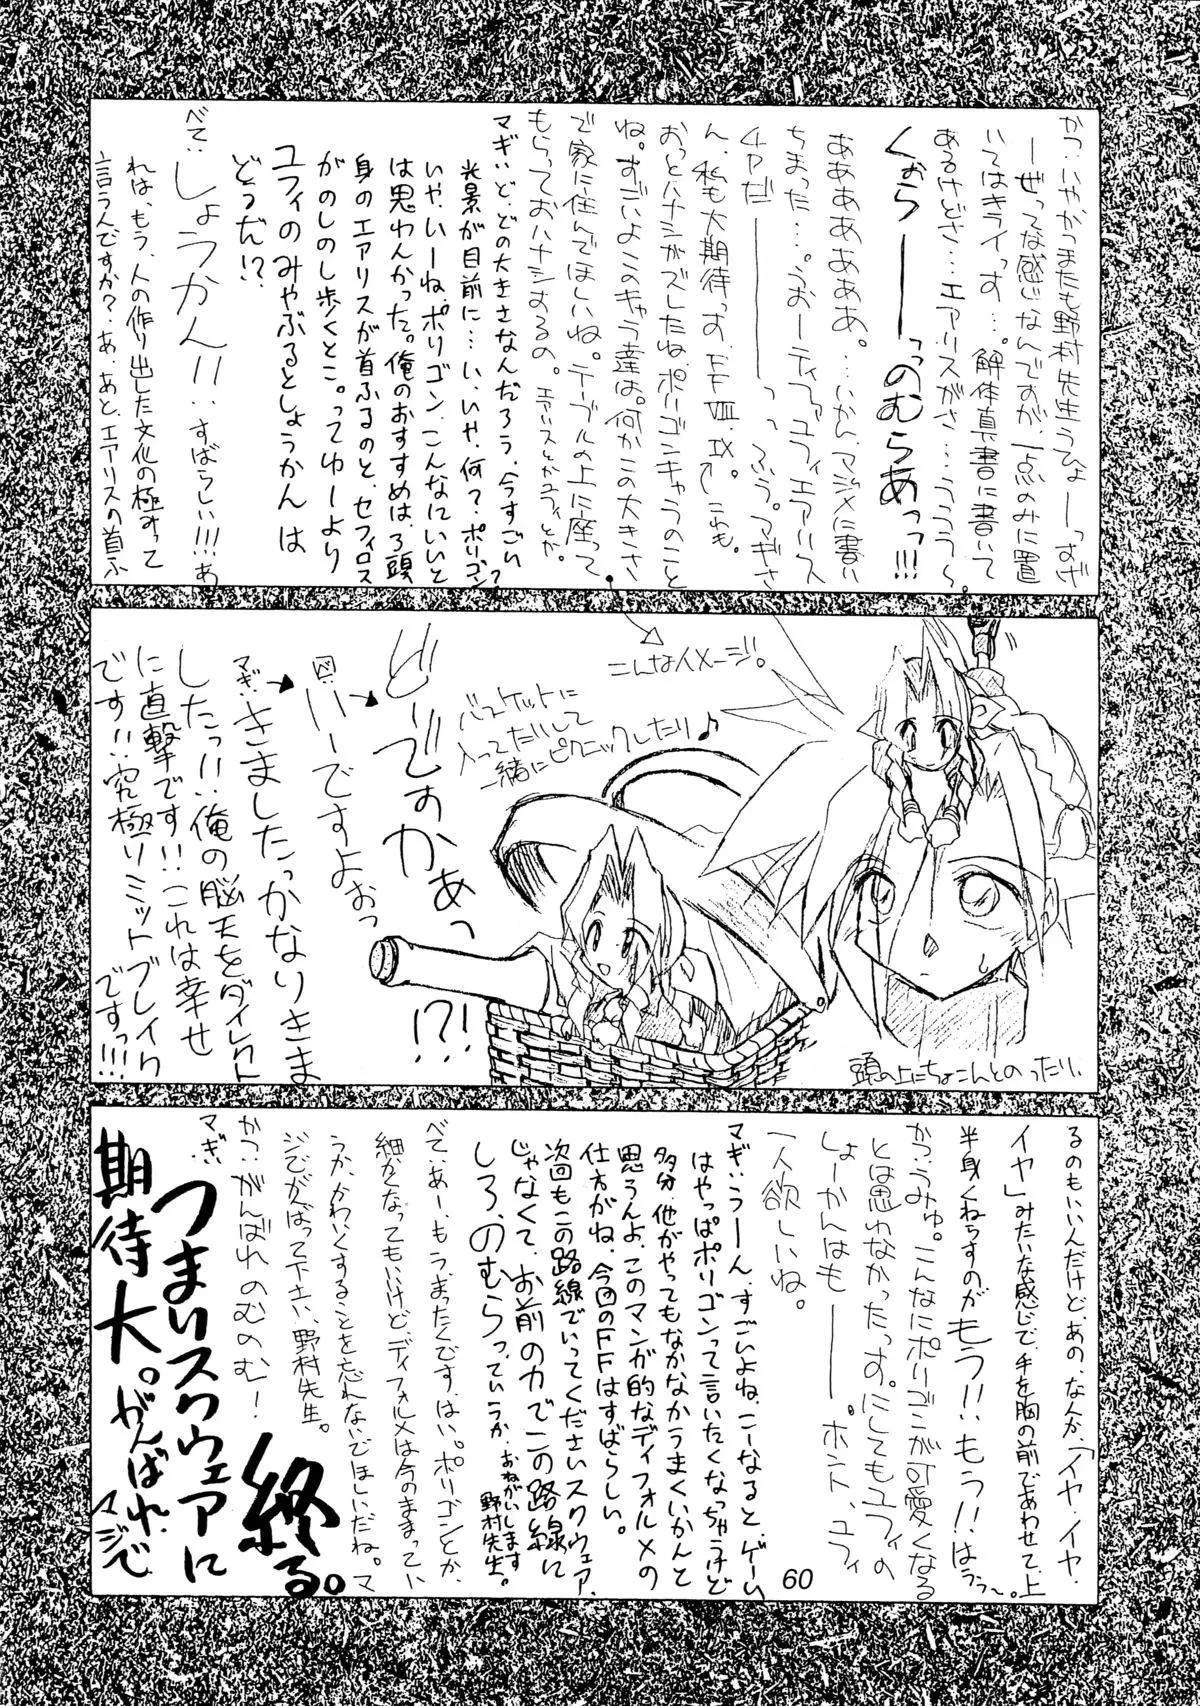 かつ‥いやかつまたも野村先生うひょーっすげ
ーぜってな感じなんですが、一点のみに置
いてはキライっす…。解体真書に書いて
あるけどさ…エアリスがさ…ううう〜。
くぉらーーっっのむらあっっ!!!
ああああああ。…いかん、マジメに書い
ちまった…。うおーティファユフィエアリス
チャだーーーーっっ ふう。マギさ
ん、私も大期待っす、FFⅧ、Ⅸ。これも。
おっとハナシがズレたね。ポリゴンキャラのこと
ね。すごいよこのキャラ達は。何かこの大きさ
で家に住んでほしいね。テーブルの上に座って
もらっておハナシするの。エアリスとかユフィとか。
マギ‥ど、どの大きさなんだろう、今すごい
光景が目前に…い、いや、何?ポリゴン?
いや、いーね、ポリゴン、こんなにいいと
は思わんかった。俺のおすすめは、3頭
身のエアリスが首ふるのと、セフィロス
がのしのし歩くとこ。ってゆーより
ユフィのみやぶるとしょうかんは
どうだ!?
べて‥しょうかん!!‥すばらしい!!!あ
れは、もう、人の作り出した文化の極すって
言う人ですか?あ、あと、エアリスの首ふ
こんなイメージ。
バスケットに
入ってたいして
一緒にピクニックしたり♪
頭の上にちょこんとのったり、
どーですかあっ!?!
べ‥いーですよおっ
マギ‥きましたっかなりきま
したっ!!俺の脳天をダイレクト
に直撃です!!これは幸せ
です!!究極リミットブレイク
ですっ!!!
るのもいいんだけど、あの、なんか、「イヤ、イヤ、
イヤ」みたいな感じで、手を胸の前であわせて、上
半身くねらすのがもう!!もう!!はうう〜。
かつ‥うみゅ。こんなにポリゴンが可愛くなる
とは思わなかったっす。にしてもユフィの
しょーかんはもーーー。ホント、ユフィ
一人欲しいね。
マギ‥うーん、すごいよね、こーなると、ゲーム
はやっぱポリゴンって言いたくなっちゃうけど
多分、他がやってもなかなかうまくいかんと
思うんよ、このマンガ的なディフォルメの
仕方がね、今回のFFはすばらしい。
次回もこの路線でいってくださいスクウェア、
じゃなくて、お前の力でこの路線に
しろ、のむらっ、ていうか、おねがいします
野村先生。
べて‥あー、もう、まったくです、はい。ポリゴンとか、
細かくなってもいけど、ディフォルメは今のままってい
うか、かわいくすることを忘れないでほしいだね。マ
ジでがんばって下さい、野村先生。
かつ‥がんばれのむのむ!
マギ‥つまりスクウェアに
期待大。がんばれ、マジで
終る。
60